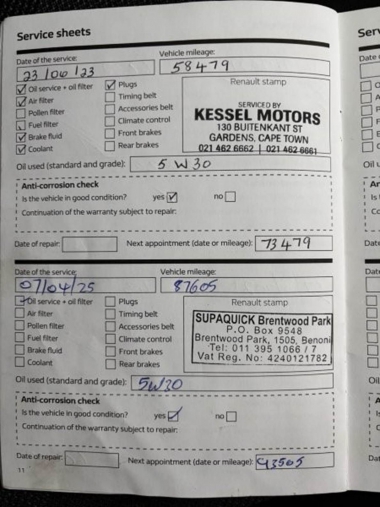 Service sheets
Date of the service: Vehicle mileage:
23/06/23 58479
Oil service + oil filter Plugs Renault stamp
Air filter Timing belt
Pollen filter Accessories belt
Fuel filter Climate control
Brake fluid Front brakes
Coolant Rear brakes
SERVICED BY
KESSEL MOTORS
130 BUITENKANT ST
GARDENS, CAPE TOWN
021 462 6662 021 462 6661
Oil used (standard and grade): 5W30
Anti-corrosion check
Is the vehicle in good condition? yes no
Continuation of the warranty subject to repair:
Date of repair: Next appointment (date or mileage): 73479
Date of the service: Vehicle mileage:
07/04/25 87605
Oil service + oil filter Plugs Renault stamp
Air filter Timing belt
Pollen filter Accessories belt
Fuel filter Climate control
Brake fluid Front brakes
Coolant Rear brakes
SUPAQUICK Brentwood Park
P.O. Box 9548
Brentwood Park, 1505, Benoni
Tel: 011 395 1066 / 7
Vat Reg. No: 4240121782
Oil used (standard and grade): 5W30
Anti-corrosion check
Is the vehicle in good condition? yes no
Continuation of the warranty subject to repair:
Date of repair: Next appointment (date or mileage):
11